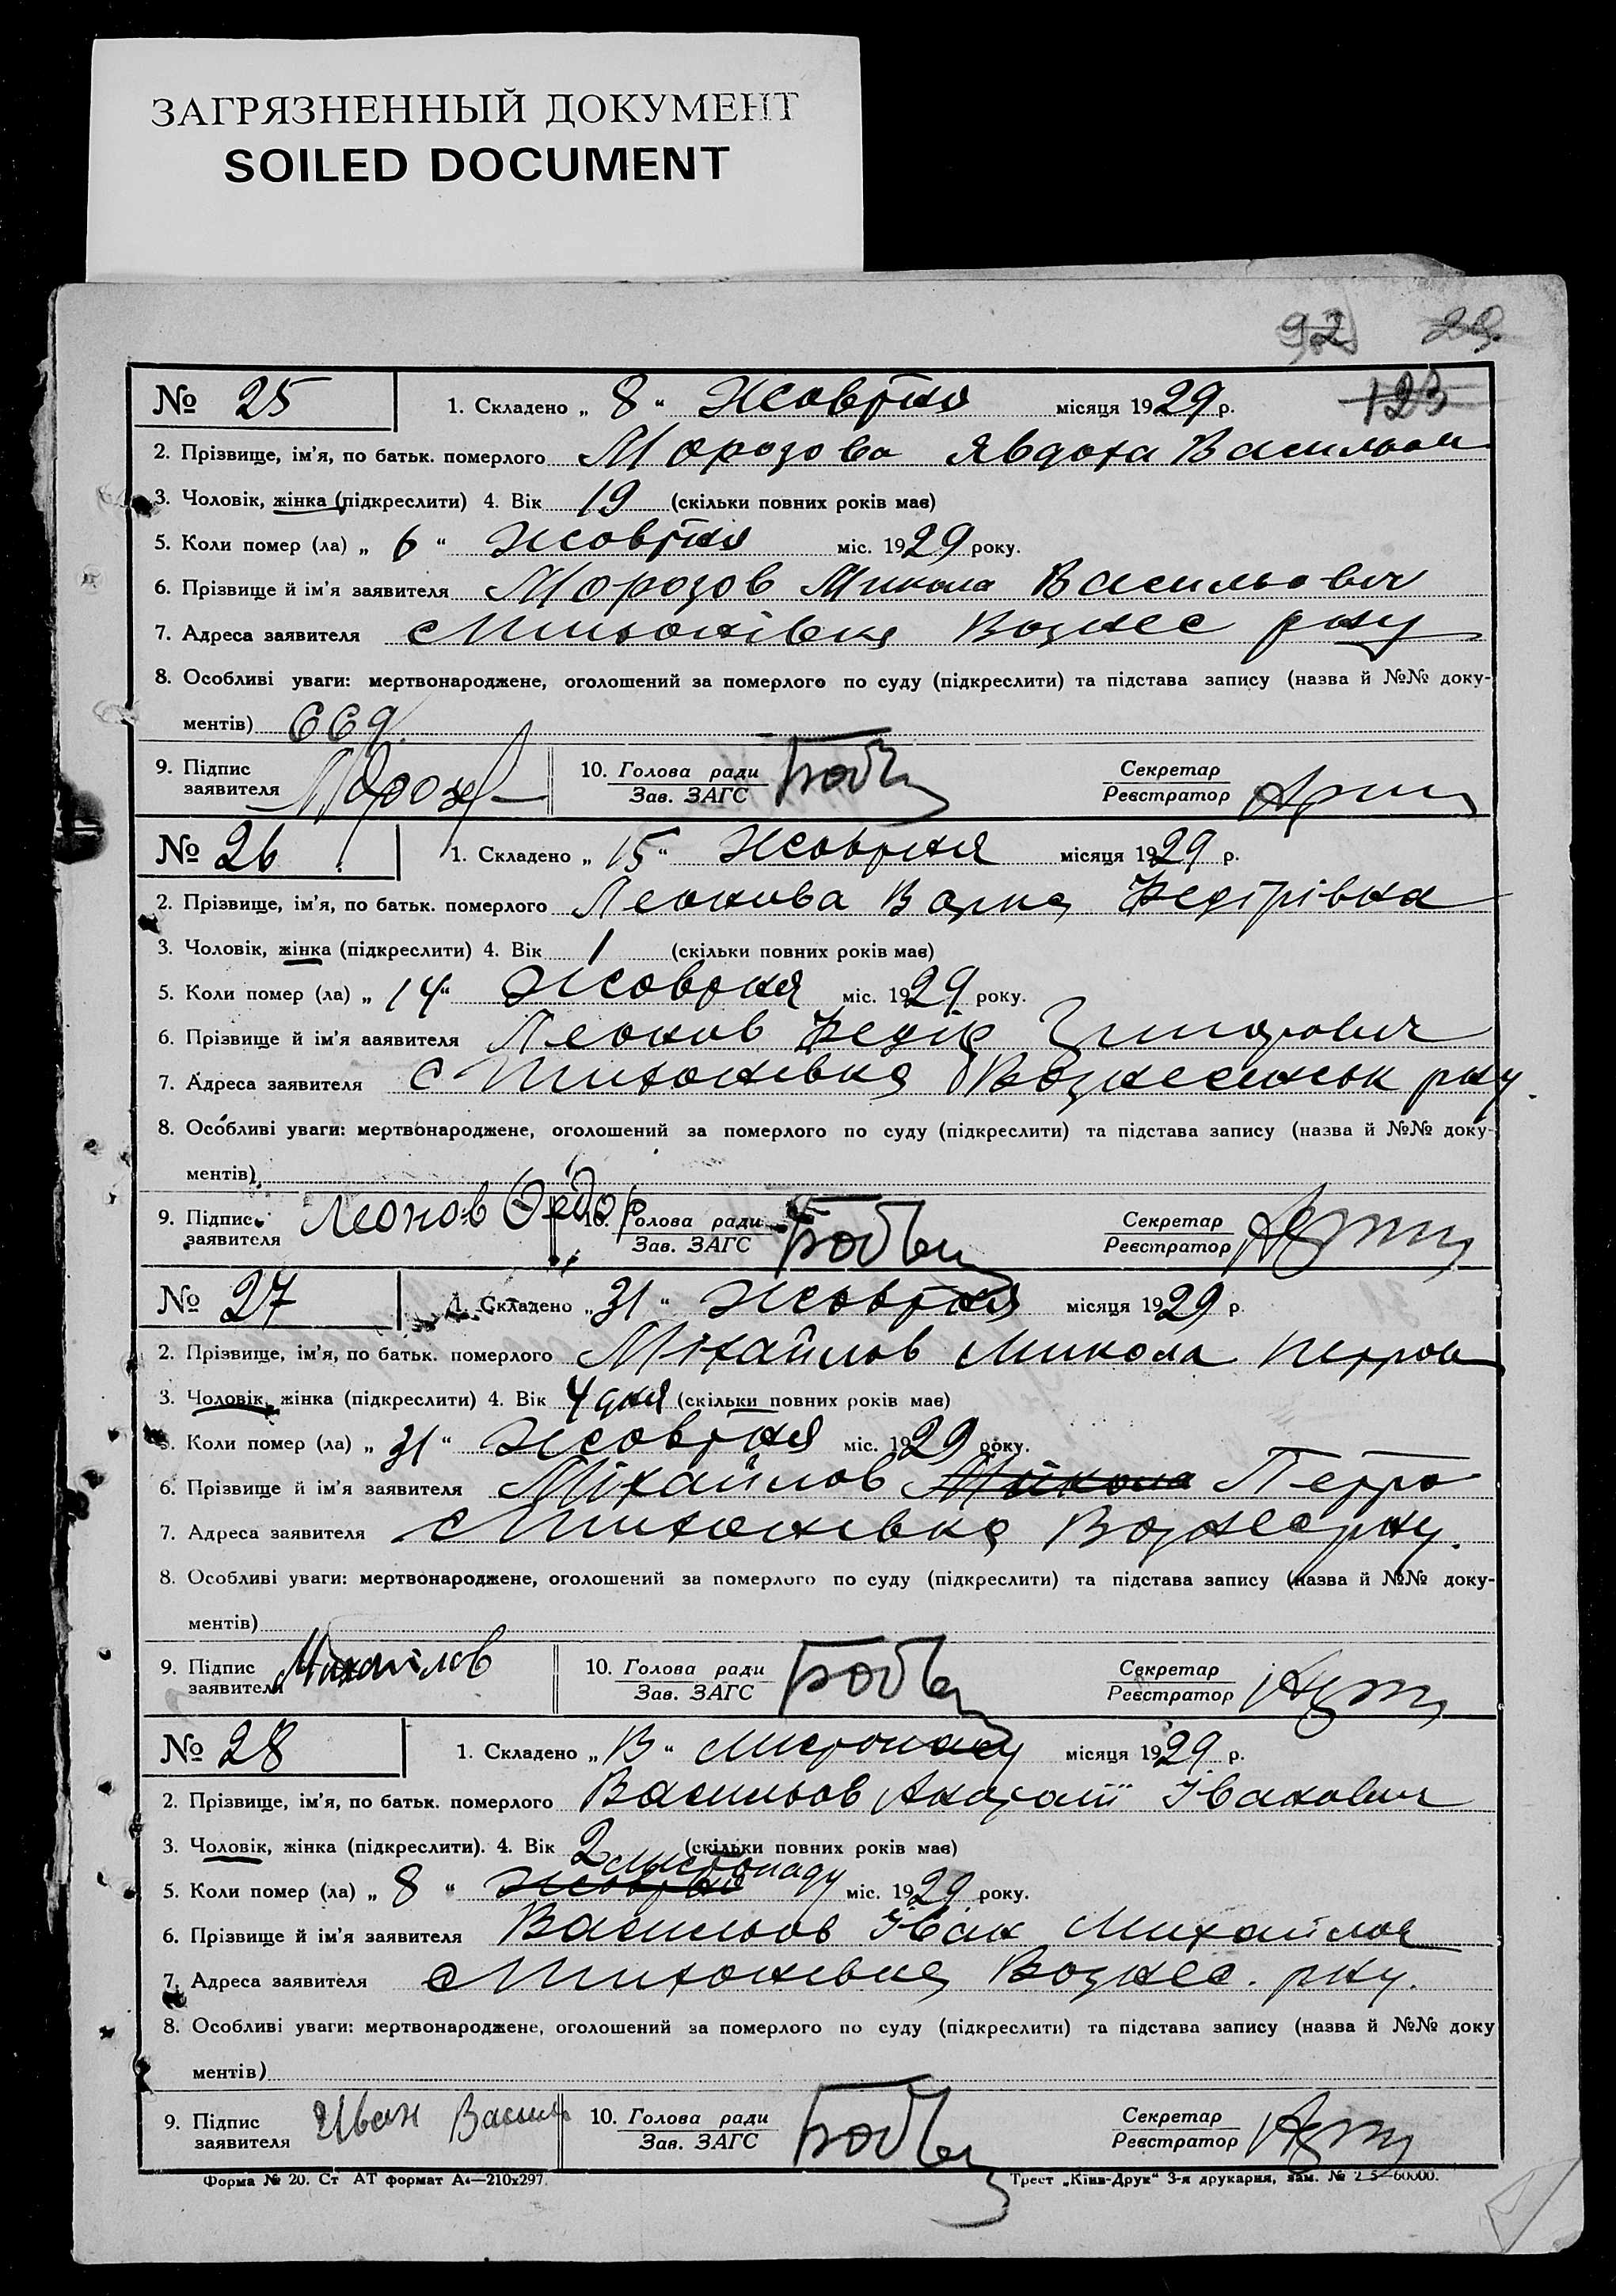 ЗАГРЯЗНЕННЫЙ ДОКУМЕНТ
SOILED DOCUMENT
92 29
123
№ 25 1. Складено „ 8 “ Жовтня місяця 1929 р.
2. Прізвище, ім'я, по батьк. померлого Морозова Явдоха
3. Чоловік, жінка (підкреслити) 4. Вік 19 (скільки повних років має)
5. Коли помер (ла) „ 6 “ Жовтня міс. 1929 року.
6. Прізвище й ім'я заявителя Морозов Микола Васильович
7. Адреса заявителя с Тихонівка Вознес рну
8. Особливі уваги: мертвонароджене, оголошений за померлого по суду (підкреслити) та підстава запису (назва й №№ доку-
ментів)
9. Підпис заявителя 10. Голова ради Зав. ЗАГС Секретар Реєстратор
№ 26 1. Складено „ 15 “ Жовтня місяця 1929 р.
2. Прізвище, ім'я, по батьк. померлого Леонова
3. Чоловік, жінка (підкреслити) 4. Вік 1 (скільки повних років має)
5. Коли помер (ла) „ 14 “ Жовтня міс. 1929 року.
6. Прізвище й ім'я заявителя Леонов Федір
7. Адреса заявителя с Тихонівка рну.
8. Особливі уваги: мертвонароджене, оголошений за померлого по суду (підкреслити) та підстава запису (назва й №№ доку-
ментів)
9. Підпис заявителя Леонов 10. Голова ради Зав. ЗАГС Секретар Реєстратор
№ 27 1. Складено „ 31 “ Жовтня місяця 1929 р.
2. Прізвище, ім'я, по батьк. померлого Міхайлов Микола Петров
3. Чоловік, жінка (підкреслити) 4. Вік 4 дня (скільки повних років має)
5. Коли помер (ла) „ 31 “ Жовтня міс. 1929 року.
6. Прізвище й ім'я заявителя Міхайлов Микола Петро
7. Адреса заявителя с Тихонівка Вознес рну.
8. Особливі уваги: мертвонароджене, оголошений за померлого по суду (підкреслити) та підстава запису (назва й №№ доку-
ментів)
9. Підпис заявителя 10. Голова ради Зав. ЗАГС Секретар Реєстратор
№ 28 1. Складено „ “ Листопаду місяця 1929 р.
2. Прізвище, ім'я, по батьк. померлого Васильов Анатолії Іванович
3. Чоловік, жінка (підкреслити). 4. Вік 2 (скільки повних років має)
5. Коли помер (ла) „ 8 “ Жовтня листопаду міс. 1929 року.
6. Прізвище й ім'я заявителя Васильов Іван
7. Адреса заявителя с Тихонівка Вознес. рну.
8. Особливі уваги: мертвонароджене, оголошений за померлого по суду (підкреслити) та підстава запису (назва й №№ доку
ментів)
9. Підпис заявителя Иван Василь 10. Голова ради Зав. ЗАГС Секретар Реєстратор
Форма № 20. Ст АТ формат А4—210х297. Трест „Київ-Друк“ 3-я друкарня, зам.